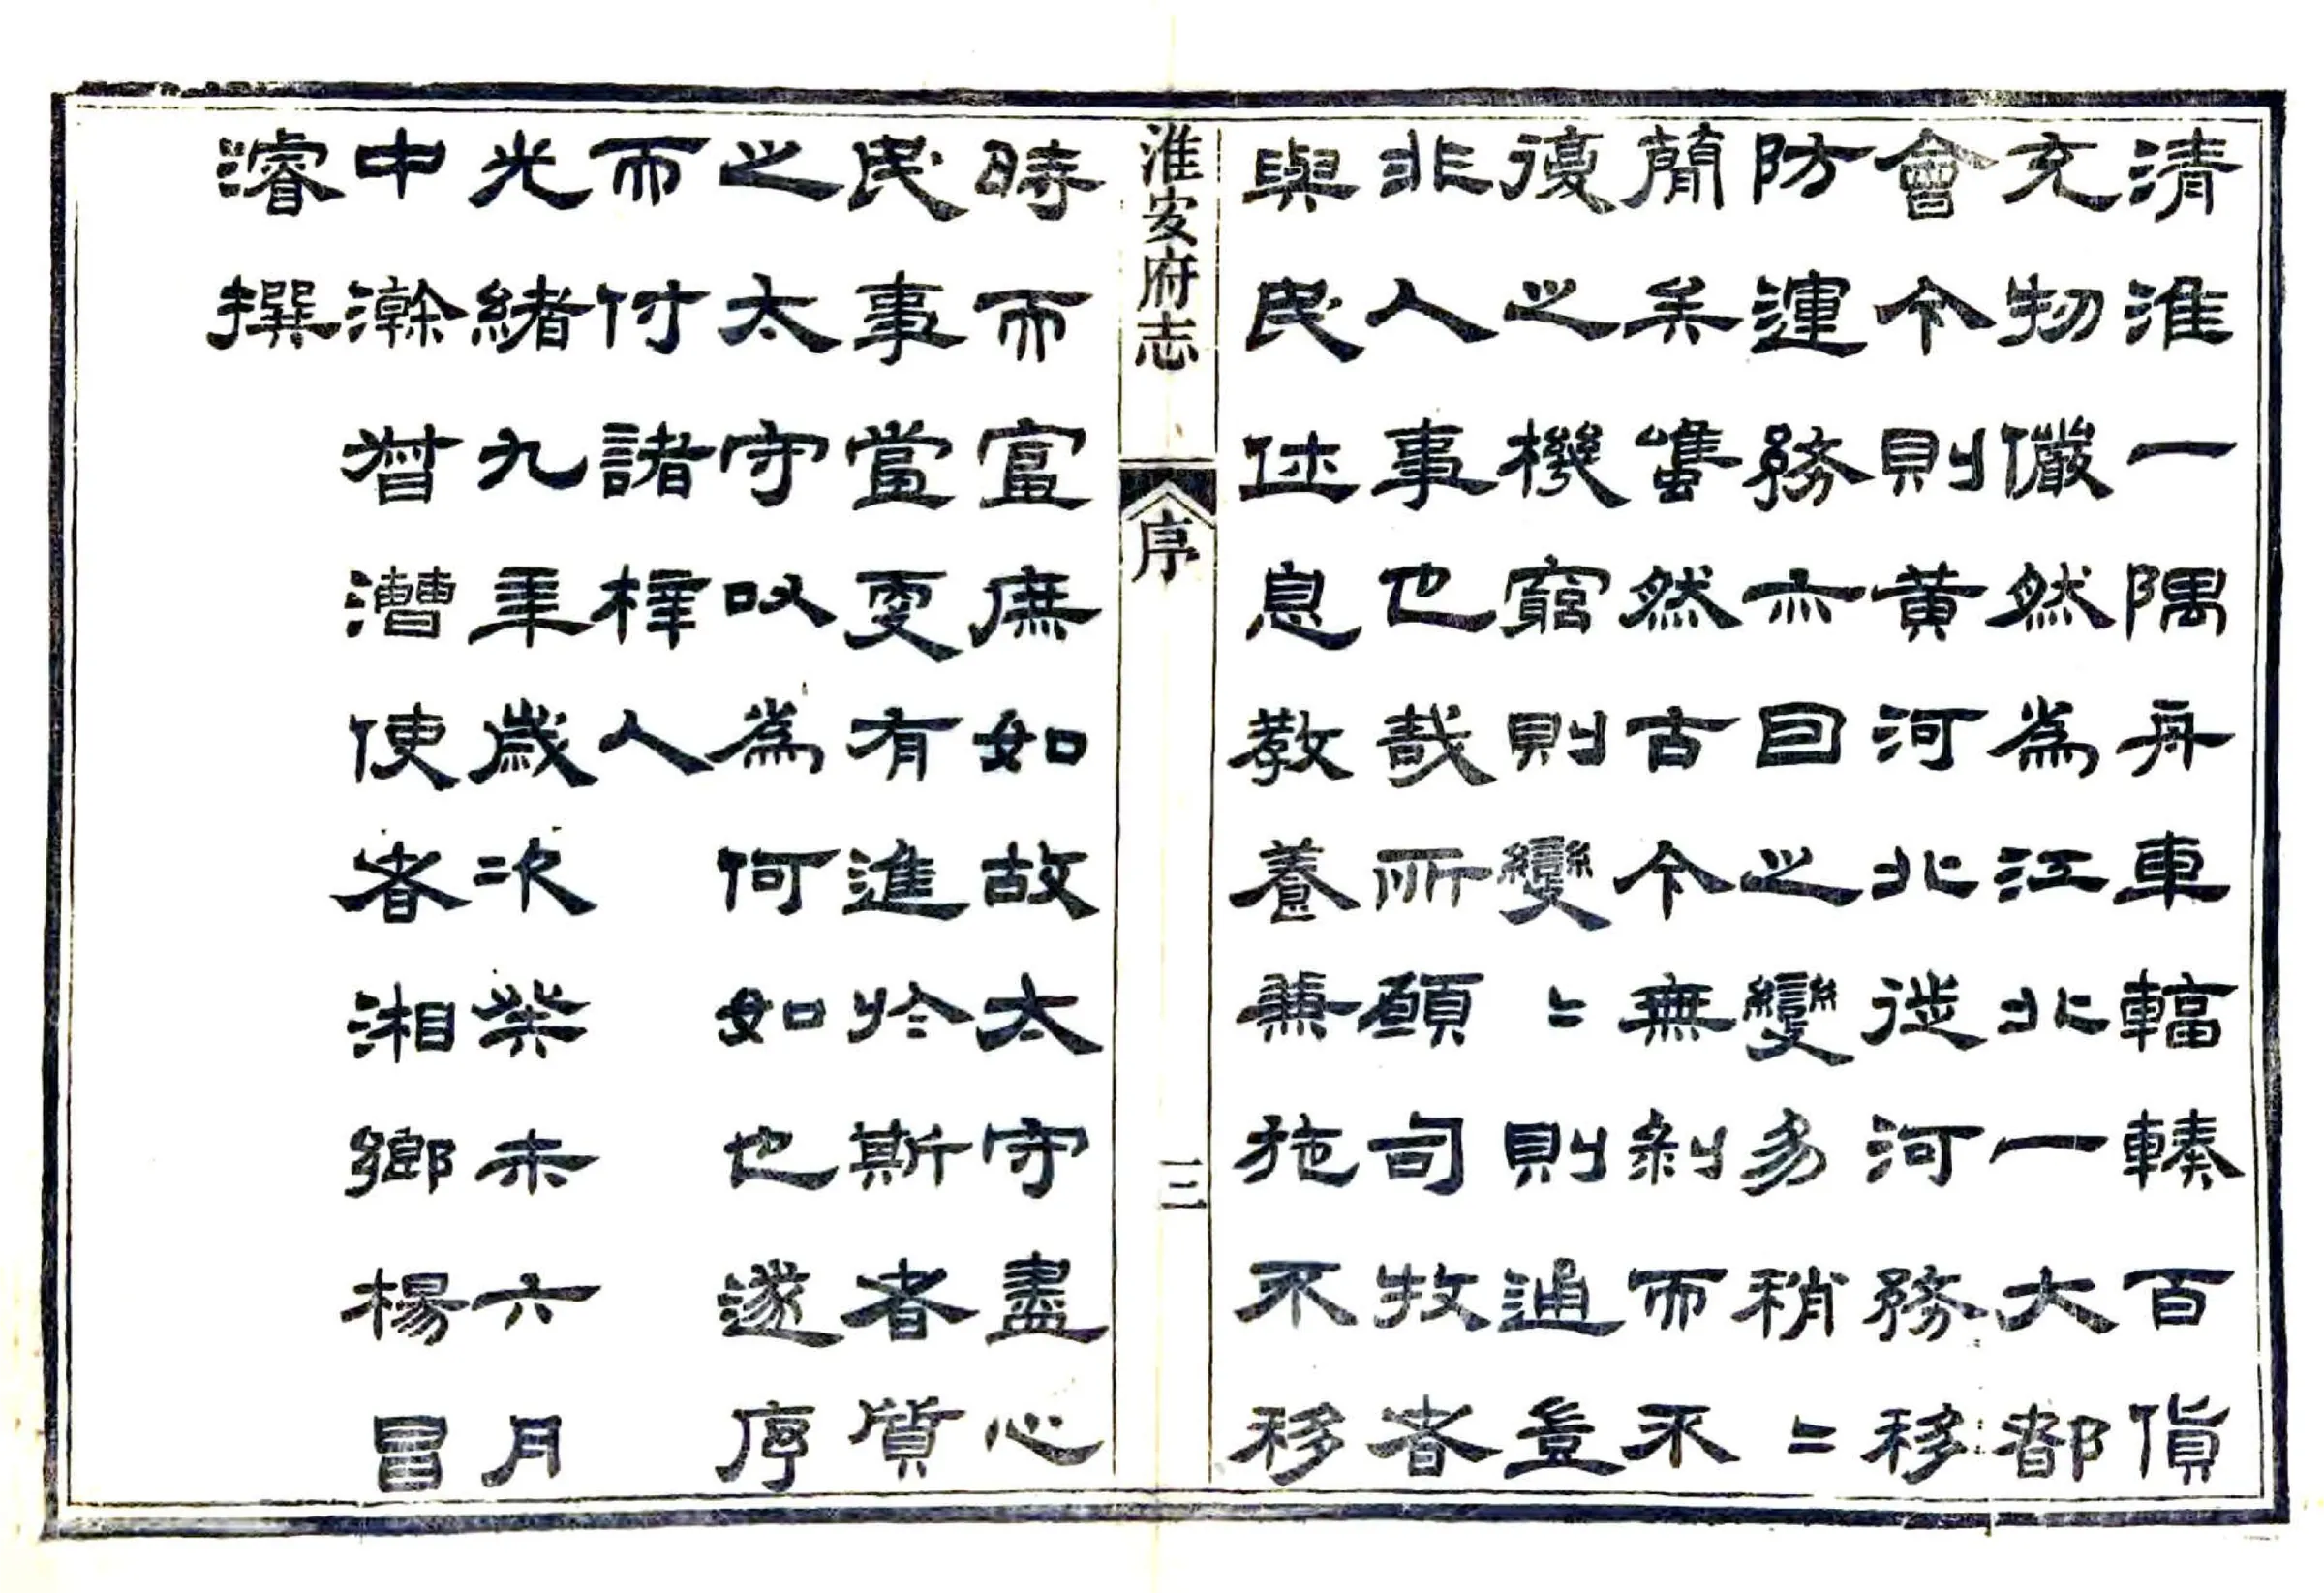 清淮一隅舟車輻輳百貨
充牣儼然為江北一大都
會今則黄河北徙河務移
防運務亦因之變易稍〻
簡矣雖然古今無剝而不
復之機窮則變〻則通豈
非人事也哉所願司牧者
與民休息教養兼施不移
淮安府志 序 三
時而富庶如故太守盡心
民事當更有進於斯者質
之太守以為何如也遂序
而付諸梓人
光緒九年歲次癸未六月
中澣督漕使者湘鄉楊昌
濬撰